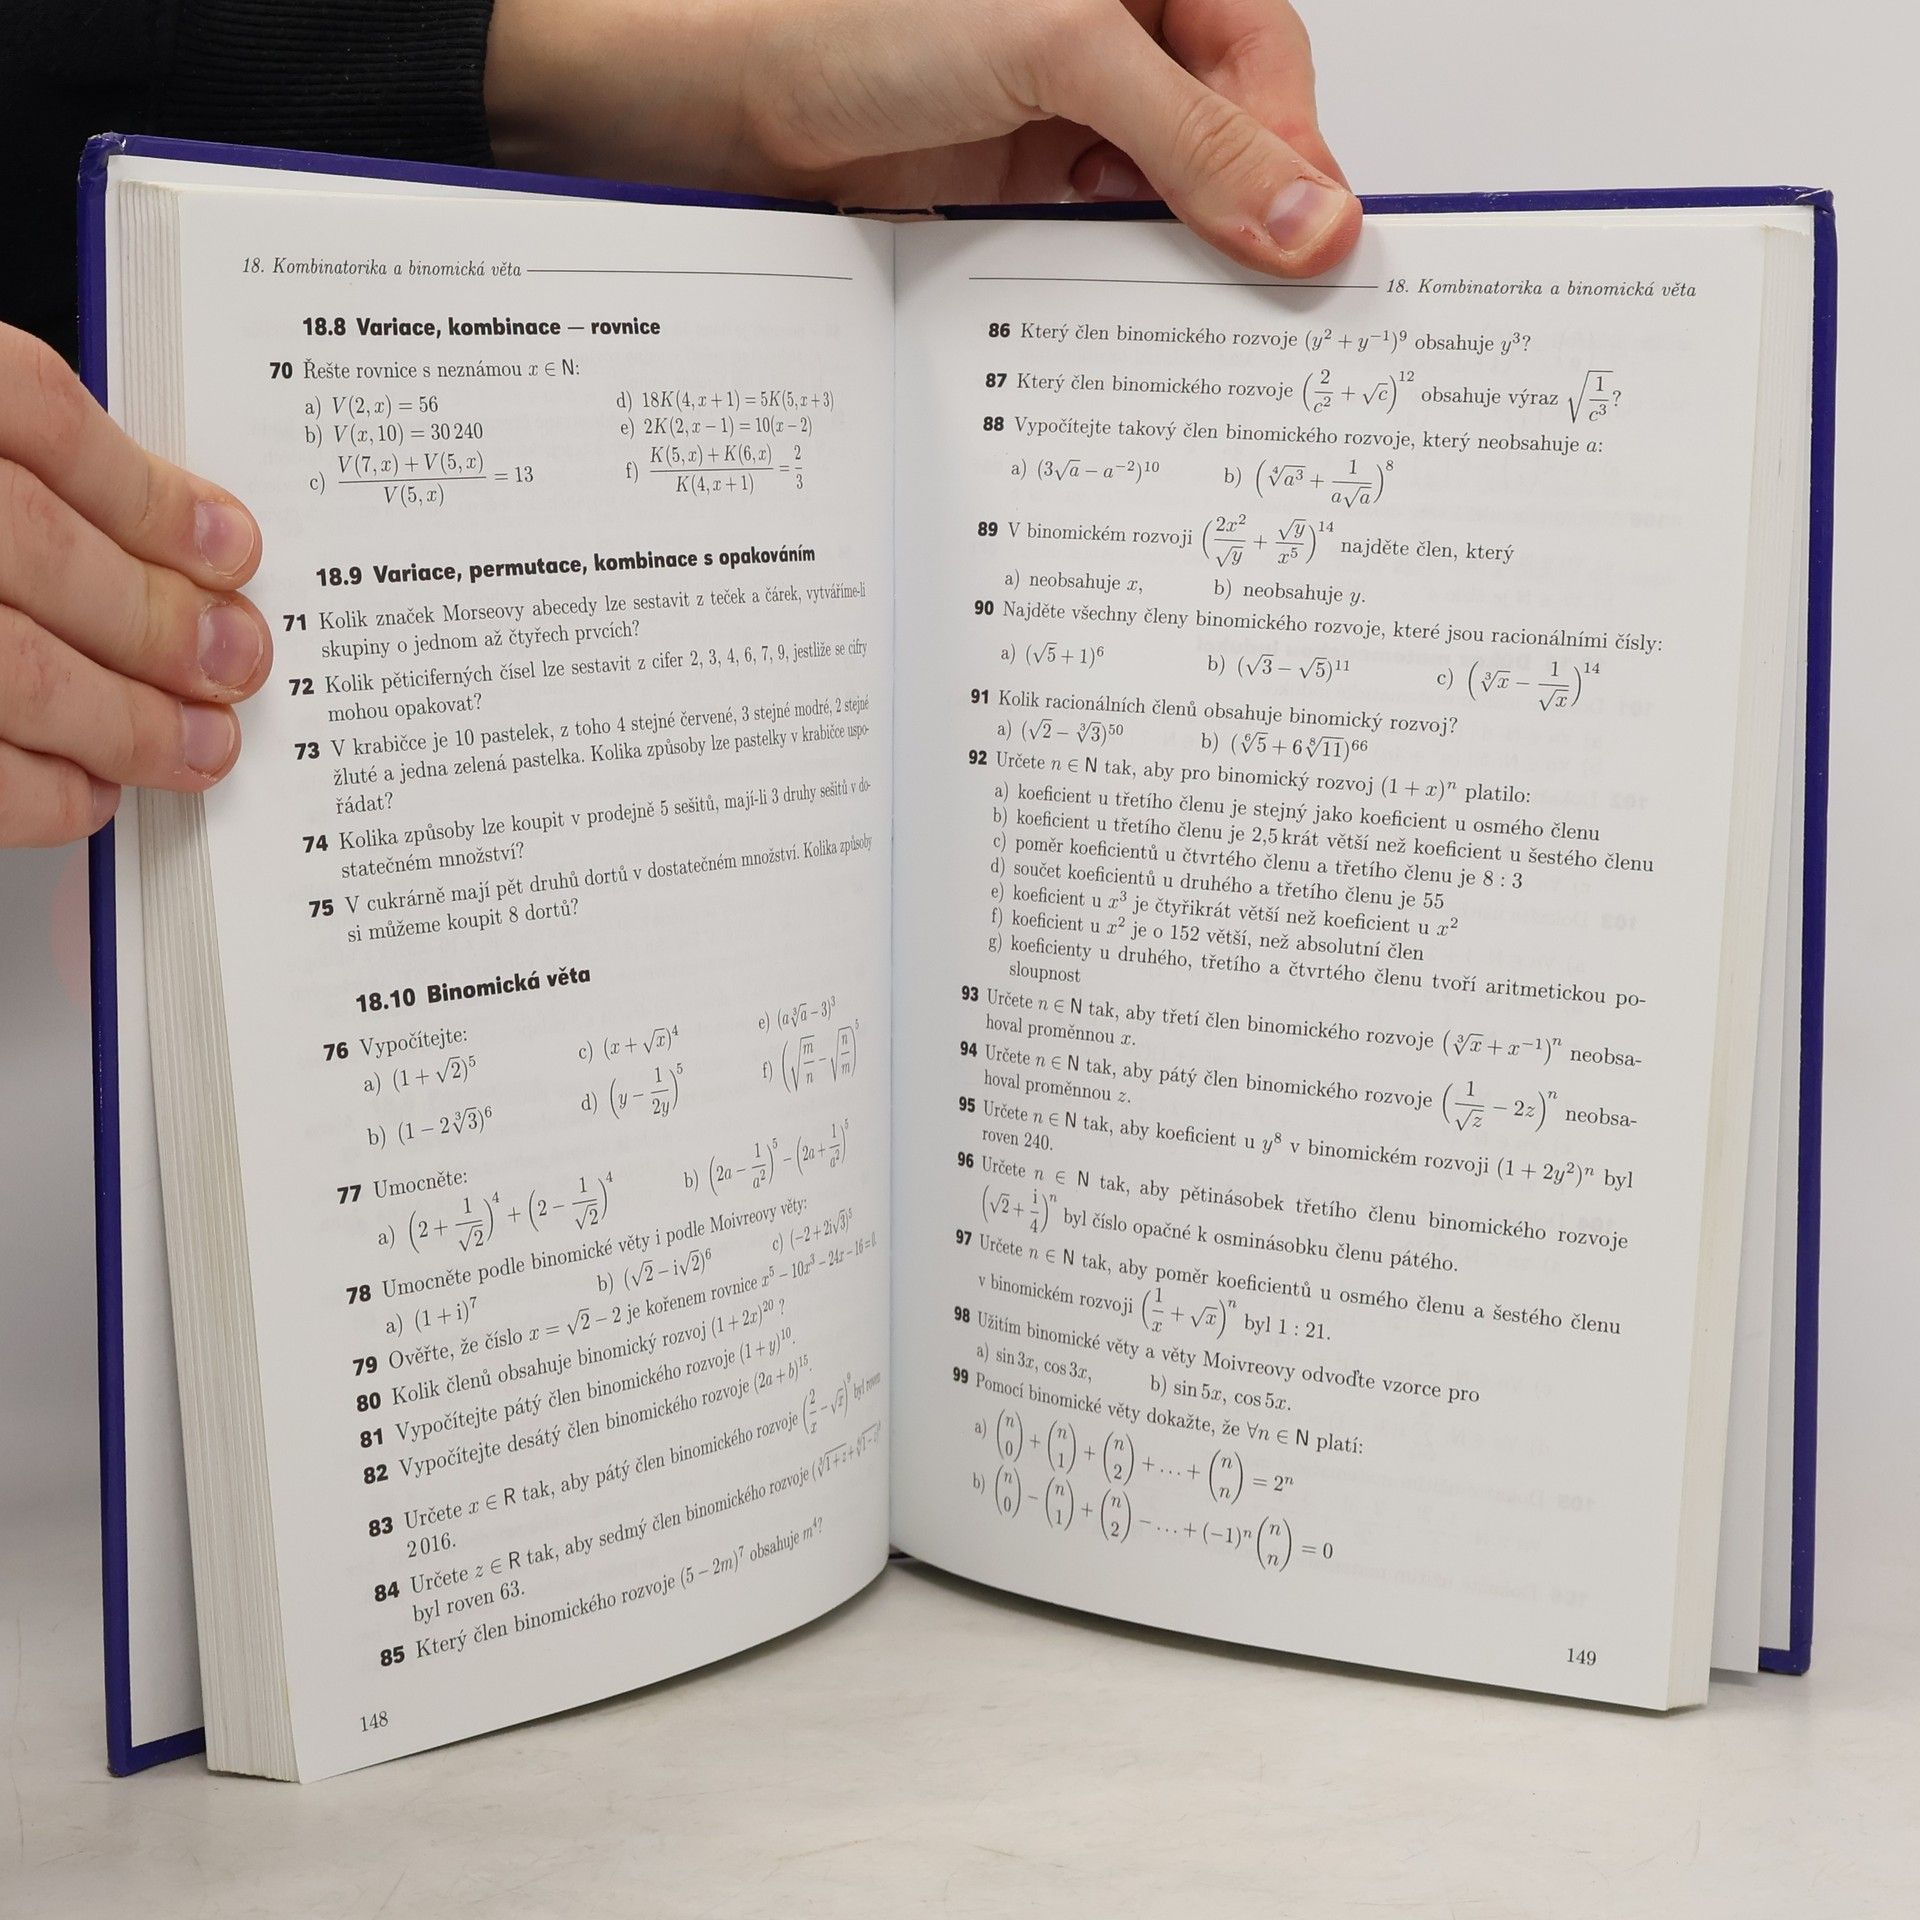 18. Kombinatorika a binomická věta
18.8 Variace, kombinace — rovnice
70 Řešte rovnice s neznámou x ∈ N:
a) V(2, x) = 56
b) V(x, 10) = 30 240
c) (V(7, x) + V(5, x)) / V(5, x) = 13
d) 18K(4, x + 1) = 5K(5, x + 3)
e) 2K(2, x − 1) = 10(x − 2)
f) (K(5, x) + K(6, x)) / K(4, x + 1) = 2/3
18.9 Variace, permutace, kombinace s opakováním
71 Kolik značek Morseovy abecedy lze sestavit z teček a čárek, vytváříme-li
skupiny o jednom až čtyřech prvcích?
72 Kolik pěticiferných čísel lze sestavit z cifer 2, 3, 4, 6, 7, 9, jestliže se cifry
mohou opakovat?
73 V krabičce je 10 pastelek, z toho 4 stejné červené, 3 stejné modré, 2 stejné
žluté a jedna zelená pastelka. Kolika způsoby lze pastelky v krabičce uspo-
řádat?
74 Kolika způsoby lze koupit v prodejně 5 sešitů, mají-li 3 druhy sešitů v do-
statečném množství?
75 V cukrárně mají pět druhů dortů v dostatečném množství. Kolika způsoby
si můžeme koupit 8 dortů?
18.10 Binomická věta
76 Vypočítejte:
a) (1 + √2)⁵
b) (1 − 2∛3)⁶
c) (x + √x)⁴
d) (y − 1/(2y))⁵
e) (a∛a − 3)³
f) (√(m/n) − √(n/m))⁵
77 Umocněte:
a) (2 + 1/√2)⁴ + (2 − 1/√2)⁴
b) (2a − 1/a²)⁵ − (2a + 1/a²)⁵
78 Umocněte podle binomické věty i podle Moivreovy věty:
a) (1 + i)⁷
b) (√2 − i√2)⁶
c) (−2 + 2i√3)⁵
79 Ověřte, že číslo x = √2 − 2 je kořenem rovnice x⁵ − 10x³ − 24x − 16 = 0.
80 Kolik členů obsahuje binomický rozvoj (1 + 2x)²⁰ ?
81 Vypočítejte pátý člen binomického rozvoje (1 + y)¹⁰.
82 Vypočítejte desátý člen binomického rozvoje (2a + b)¹⁵.
83 Určete x ∈ R tak, aby pátý člen binomického rozvoje (2/x − √x)⁹ byl roven
2016.
84 Určete z ∈ R tak, aby sedmý člen binomického rozvoje
byl roven 63.
85 Který člen binomického rozvoje (5 − 2m)⁷ obsahuje m⁴?
148
18. Kombinatorika a binomická věta
86 Který člen binomického rozvoje (y² + y⁻¹)⁹ obsahuje y³?
87 Který člen binomického rozvoje (2/c² + √c)¹² obsahuje výraz √(1/c³)?
88 Vypočítejte takový člen binomického rozvoje, který neobsahuje a:
a) (3√a − a⁻²)¹⁰ b) (∜a³ + 1/(a√a))⁸
89 V binomickém rozvoji (2x²/√y + √y/x⁵)¹⁴ najděte člen, který
a) neobsahuje x, b) neobsahuje y.
90 Najděte všechny členy binomického rozvoje, které jsou racionálními čísly:
a) (√5 + 1)⁶ b) (√3 − √5)¹¹ c) (∛x − 1/√x)¹⁴
91 Kolik racionálních členů obsahuje binomický rozvoj?
a) (√2 − ∛3)⁵⁰ b) (⁶√5 + 6⁸√11)⁶⁶
92 Určete n ∈ N tak, aby pro binomický rozvoj (1 + x)ⁿ platilo:
a) koeficient u třetího členu je stejný jako koeficient u osmého členu
b) koeficient u třetího členu je 2,5krát větší než koeficient u šestého členu
c) poměr koeficientů u čtvrtého členu a třetího členu je 8 : 3
d) součet koeficientů u druhého a třetího členu je 55
e) koeficient u x³ je čtyřikrát větší než koeficient u x²
f) koeficient u x² je o 152 větší, než absolutní člen
g) koeficienty u druhého, třetího a čtvrtého členu tvoří aritmetickou po-
sloupnost
93 Určete n ∈ N tak, aby třetí člen binomického rozvoje (∛x + x⁻¹)ⁿ neobsa-
hoval proměnnou x.
94 Určete n ∈ N tak, aby pátý člen binomického rozvoje (1/√z − 2z)ⁿ neobsa-
hoval proměnnou z.
95 Určete n ∈ N tak, aby koeficient u y⁸ v binomickém rozvoji (1 + 2y²)ⁿ byl
roven 240.
96 Určete n ∈ N tak, aby pětinásobek třetího členu binomického rozvoje
(√2 + i/4)ⁿ byl číslo opačné k osminásobku členu pátého.
97 Určete n ∈ N tak, aby poměr koeficientů u osmého členu a šestého členu
v binomickém rozvoji (1/x + √x)ⁿ byl 1 : 21.
98 Užitím binomické věty a věty Moivreovy odvoďte vzorce pro
a) sin 3x, cos 3x, b) sin 5x, cos 5x.
99 Pomocí binomické věty dokažte, že ∀n ∈ N platí:
a) (n 0) + (n 1) + (n 2) + … + (n n) = 2ⁿ
b) (n 0) − (n 1) + (n 2) − … + (−1)ⁿ(n n) = 0
149